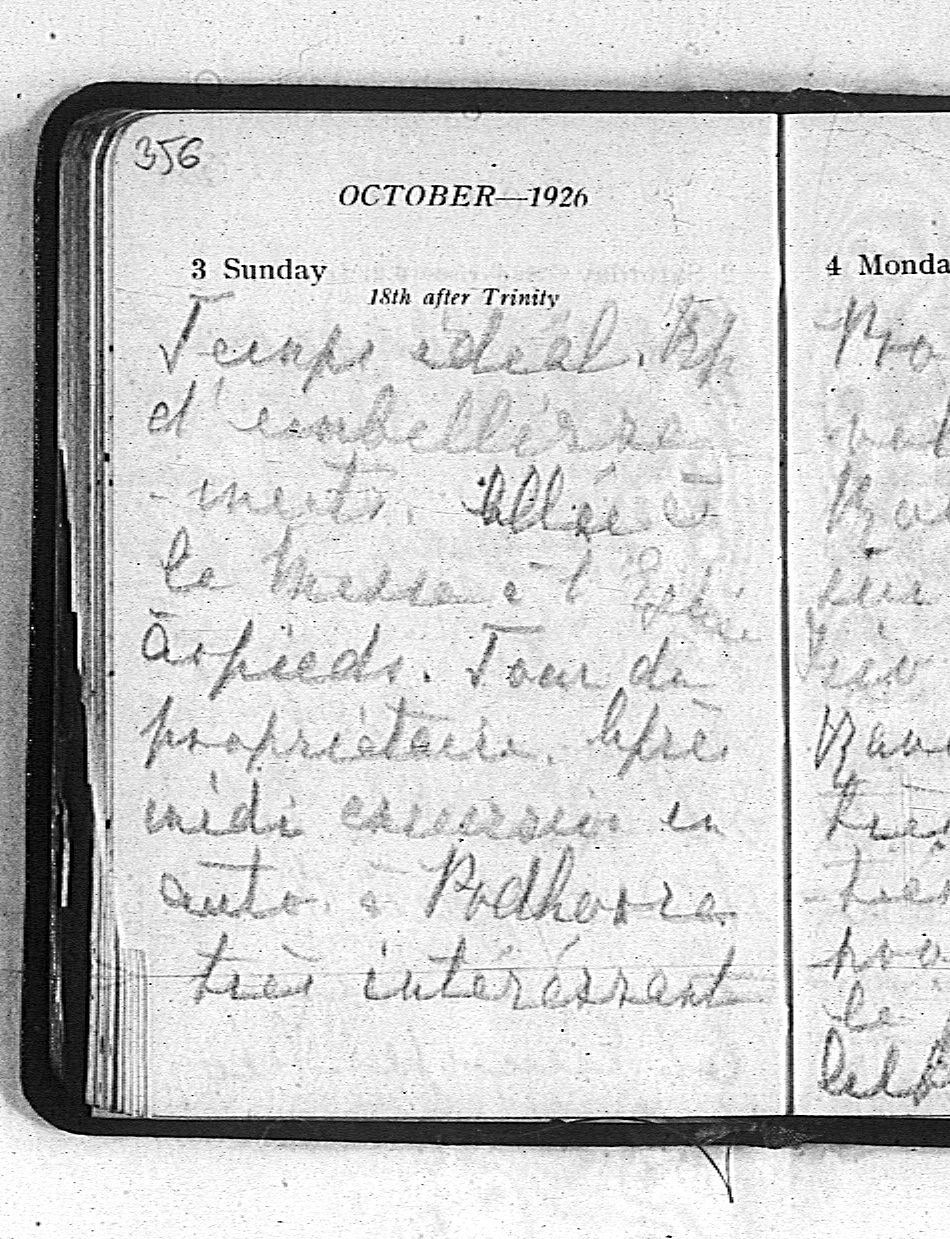 356
OCTOBER—1926
3 Sunday
18th after Trinity
Temps idéal. Bp
d'embellisse
-ments. Allée à
la Messe à l'
à pieds. Tour du
propriétaire. Après
midi excursion en
auto à Podhorce
très intéréssant
4 Monda